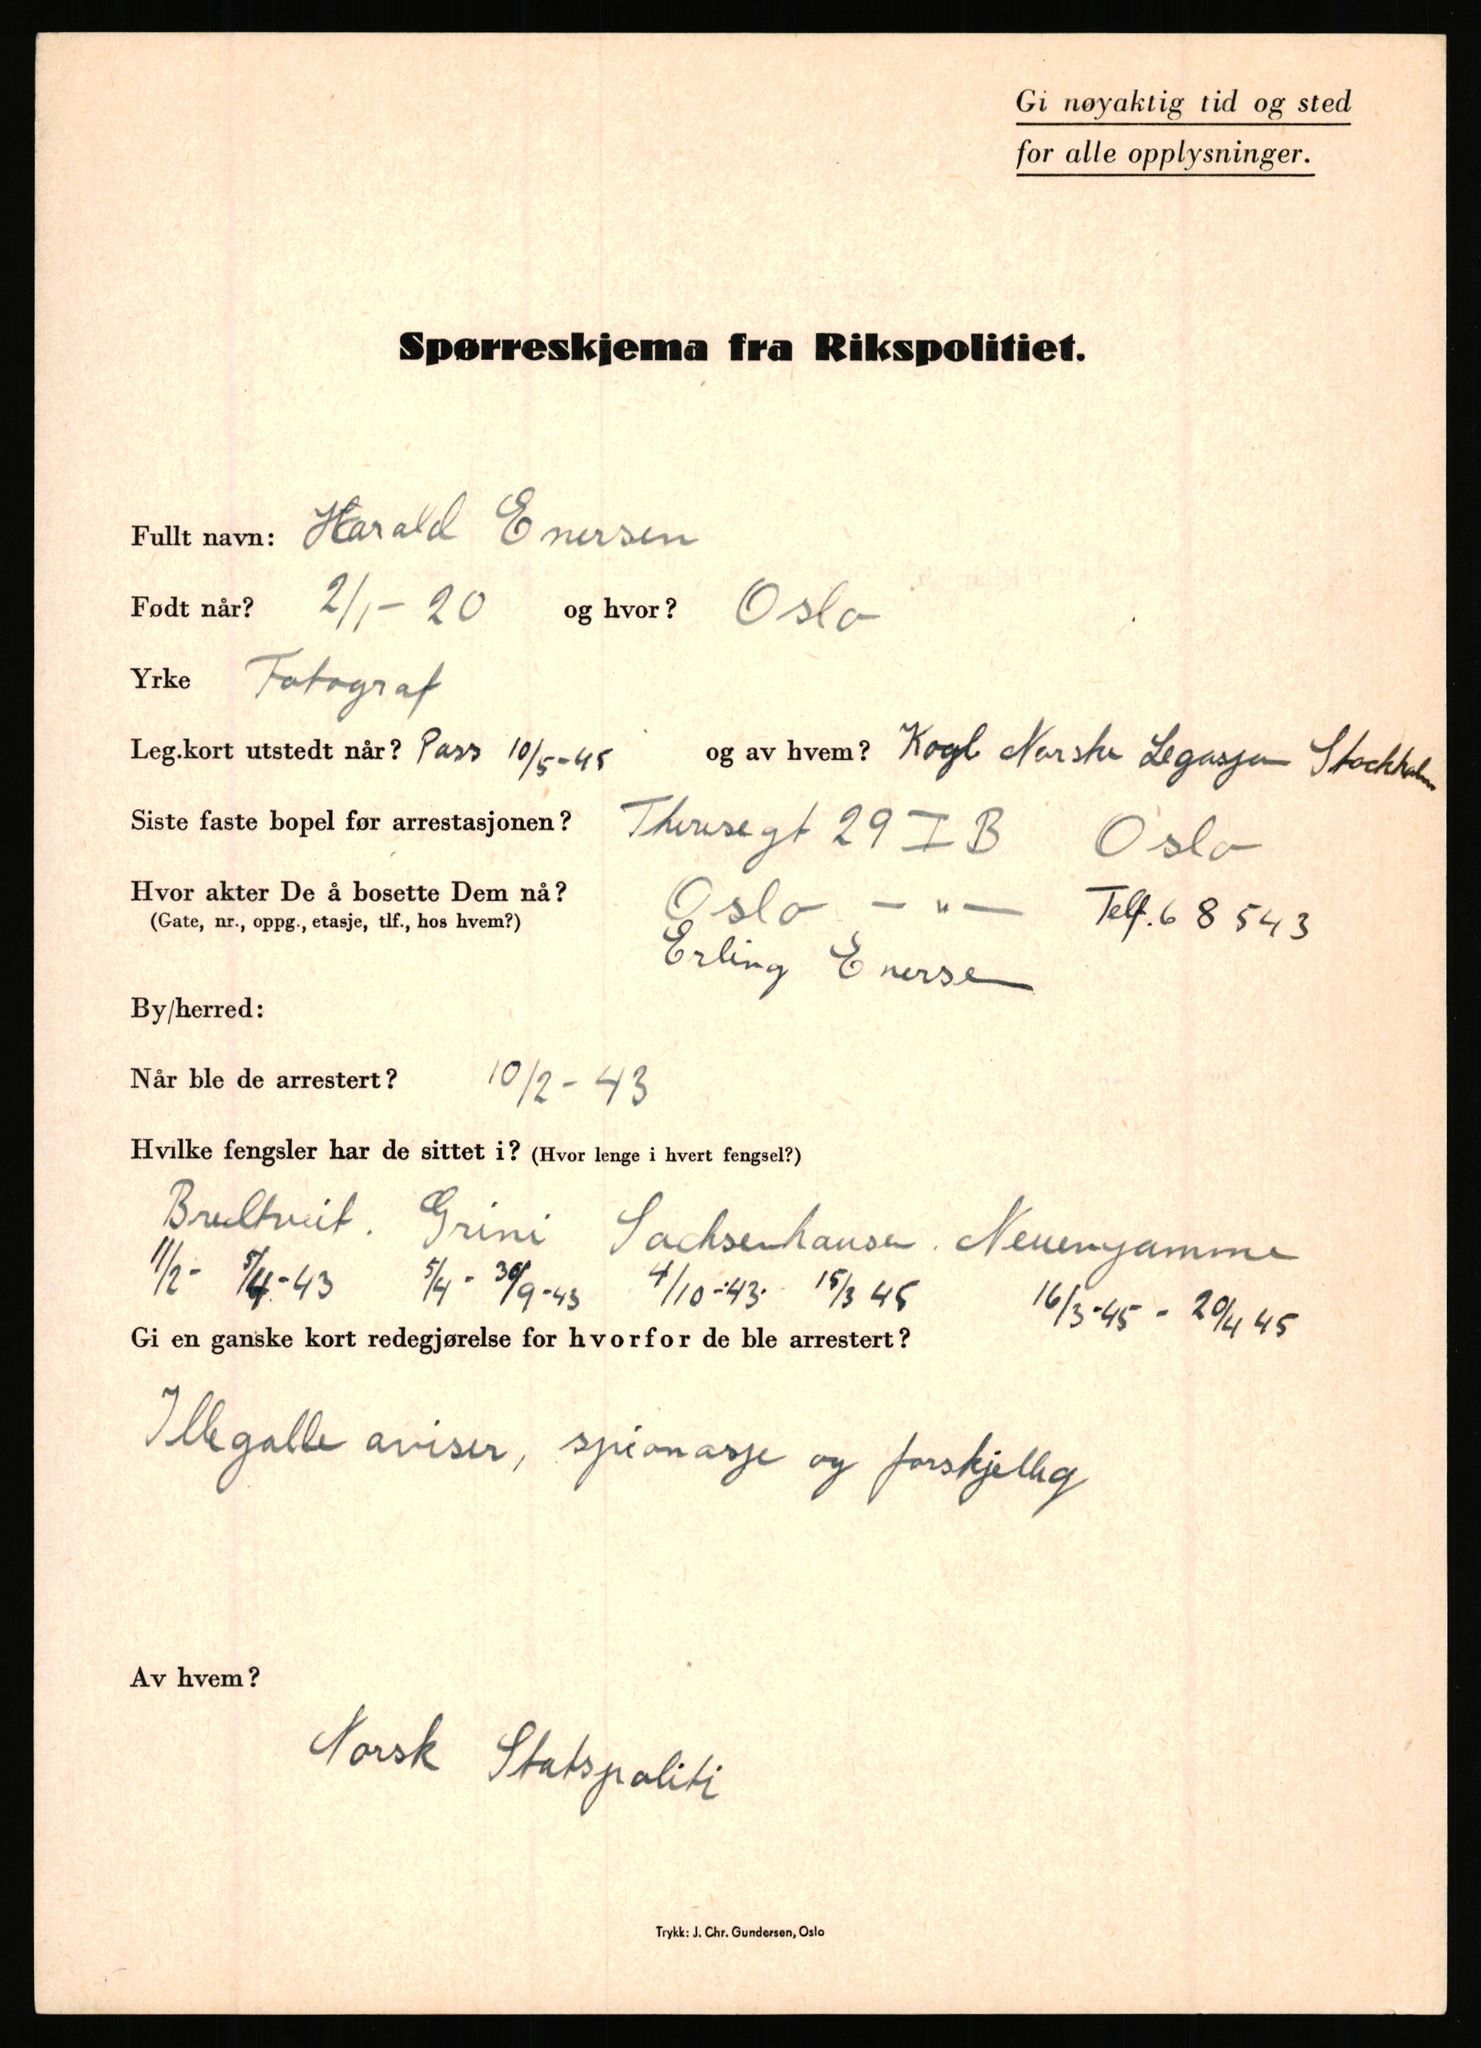 Gi nøyaktig tid og sted
for alle opplysninger.
Spørreskjema fra Rikspolitiet.
Fullt navn: Harald Enersen
Født når? 2/1-20 og hvor? Oslo
Yrke Fotograf
Leg.kort utstedt når? Pass 10/5-45 og av hvem? Kogl Norske Legasjon Stockholm
Siste faste bopel før arrestasjonen? Theresegt 29 I B Oslo
Hvor akter De å bosette Dem nå? Oslo — " — Telf. 68543
(Gate, nr., oppg., etasje, tlf., hos hvem?)
Erling Enersen
By/herred:
Når ble de arrestert? 10/2-43
Hvilke fengsler har de sittet i? (Hvor lenge i hvert fengsel?)
Bredtveit. Grini Sachsenhausen. Neuengamme
11/2 - 5/4-43 5/4 - 30/9-43 4/10-43. 15/3 45 16/3-45 - 20/4 45
Gi en ganske kort redegjørelse for hvorfor de ble arrestert?
Illegalle aviser, spionasje og forskjellig
Av hvem?
Norsk Statspoliti
Trykk: J. Chr. Gundersen, Oslo